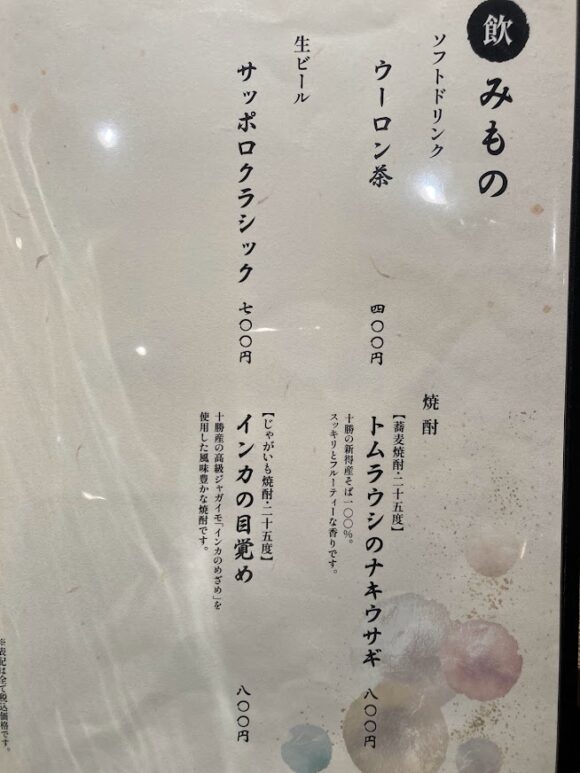 飲みもの
ソフトドリンク
ウーロン茶 四〇〇円
生ビール
サッポロクラシック 七〇〇円
焼酎
【蕎麦焼酎・二十五度】
トムラウシのナキウサギ 八〇〇円
十勝の新得産そば一〇〇%。
スッキリとフルーティーな香りです。
【じゃがいも焼酎・二十五度】
インカの目覚め 八〇〇円
十勝産の高級ジャガイモ「インカのめざめ」を
使用した風味豊かな焼酎です。
※表記は全て税込価格です。